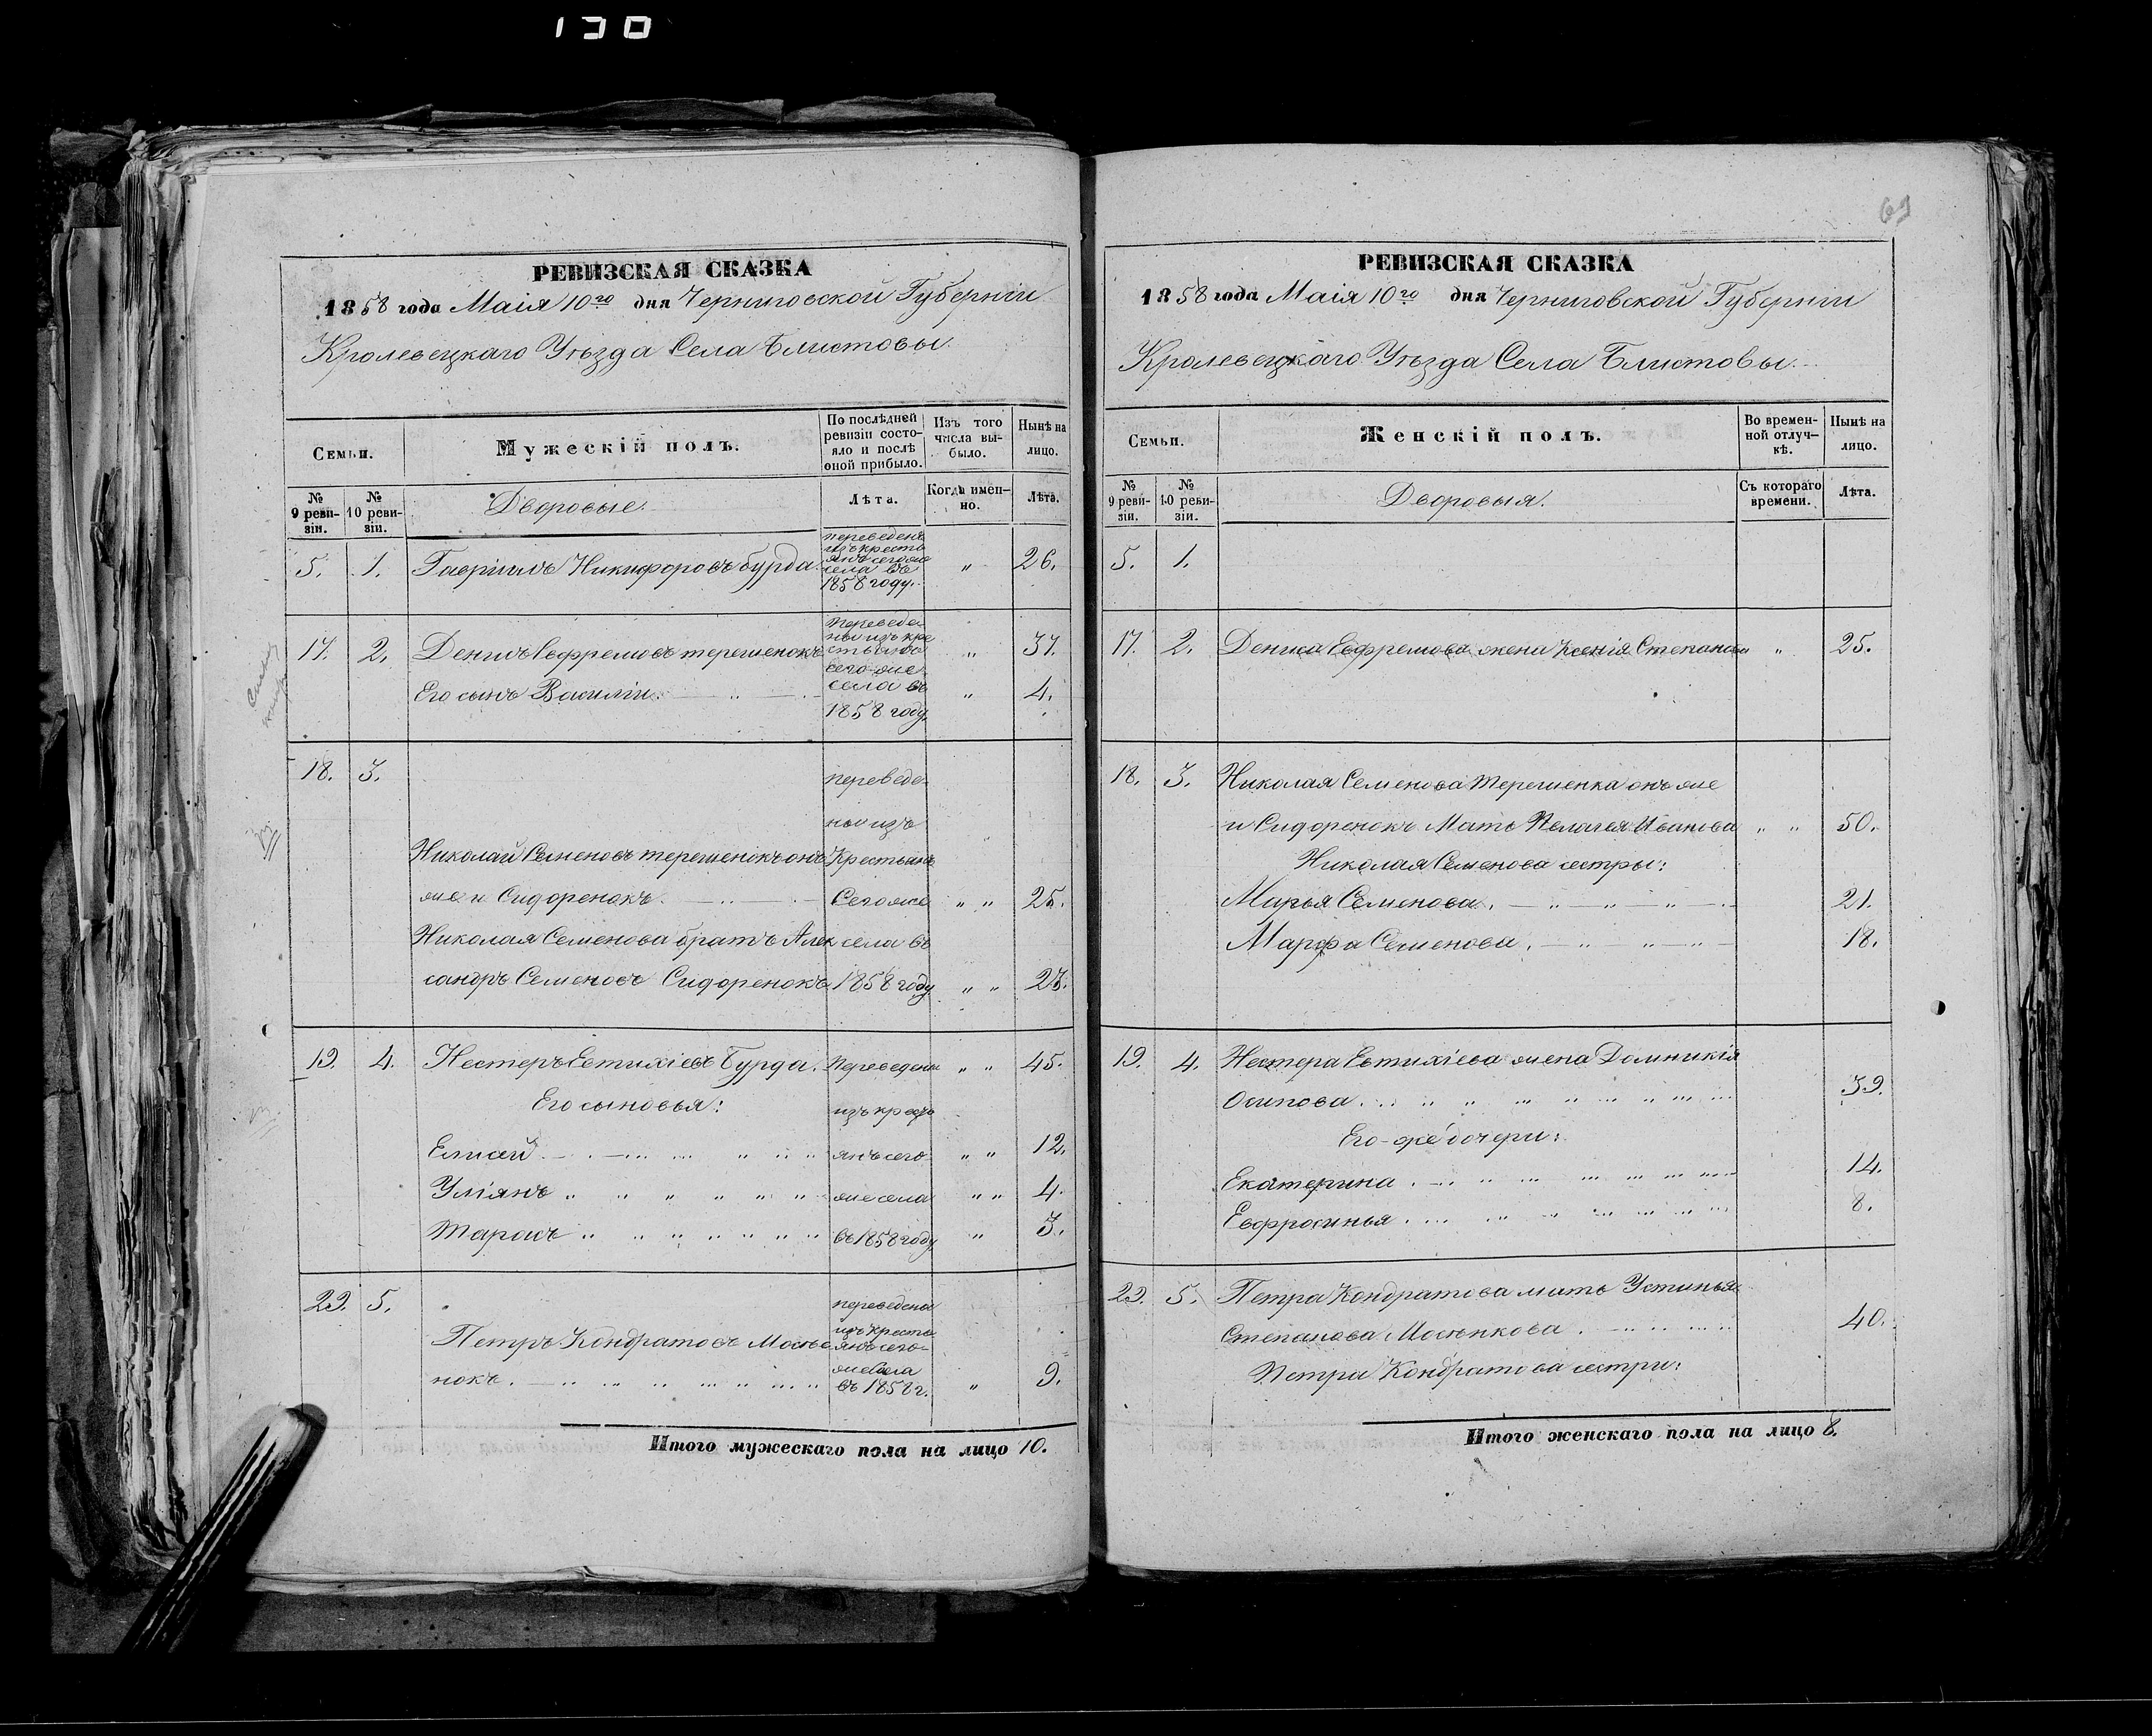 130
РЕВИЗСКАЯ СКАЗКА
1858 года Маія 10го дня Черниговской Губерніи
Кролевецкаго Уѣзда Села Блистовы.
Семьи.
Мужескій полъ.
По послѣдней ревизіи состояло и послѣ оной прибыло.
Изъ того числа выбыло.
Нынѣ на лицо.
№ 9 ревизіи.
№ 10 ревизіи.
Дворовые.
Лѣта.
Когда именно.
Лѣта.
5. 1. Гавриилъ Никифоровъ Бурда. переведенъ изъ крестьянъ сегоже села въ 1858 году. " 26.
17. 2. Денисъ Евфремовъ терешенокъ переведены изъ крестьянъ сего-же села въ 1858 году " 37.
Его сынъ Василій. " 4.
18. 3. переведены изъ
Николай Семеновъ терешенокъ онъ Крестьянъ
же и Сидоренокъ. Сегоже " " 25.
Николая Семенова братъ Алек села въ
сандръ Семеновъ Сидоренокъ 1858 году " " 23.
19. 4. Нестеръ Евтихіевъ Бурда. Переведены " " 45.
Его сыновья: изъ кресть
Елисей янъ сего- " " 12.
Уліянъ же села " " 4.
Тарасъ въ 1858 году " 3.
29. 5. переведены изъ кресть
Петръ Кондратовъ Мосѣе янъ сего-
нокъ. же села въ 1858 г. " 9.
Итого мужескаго пола на лицо 10.
69
РЕВИЗСКАЯ СКАЗКА
1858 года Маія 10го дня Черниговской Губерніи
Кролевецкаго Уѣзда Села Блистовы.
Семьи.
Женскій полъ.
Во временной отлучкѣ.
Нынѣ на лицо.
№ 9 ревизіи.
№ 10 ревизіи.
Дворовыя.
Съ котораго времени.
Лѣта.
5. 1.
17. 2. Дениса Евфремова жена Ксенія Степанова " 25.
18. 3. Николая Семенова Терешенка онъ же
и Сидоренокъ Мать Пелагея Иванова " " 50.
Николая Семенова сестры:
Марья Семенова. 21.
Марфа Семенова. 18.
19. 4. Нестера Евтихіева жена Домникія
Осипова. 39.
Его-же дочери:
Екатерина 14.
Евфросинья 8.
29. 5. Петра Кондратова мать Устинья
Степанова Мосѣнкова 40.
Петра Кондратова сестри:
Итого женскаго пола на лицо 8.